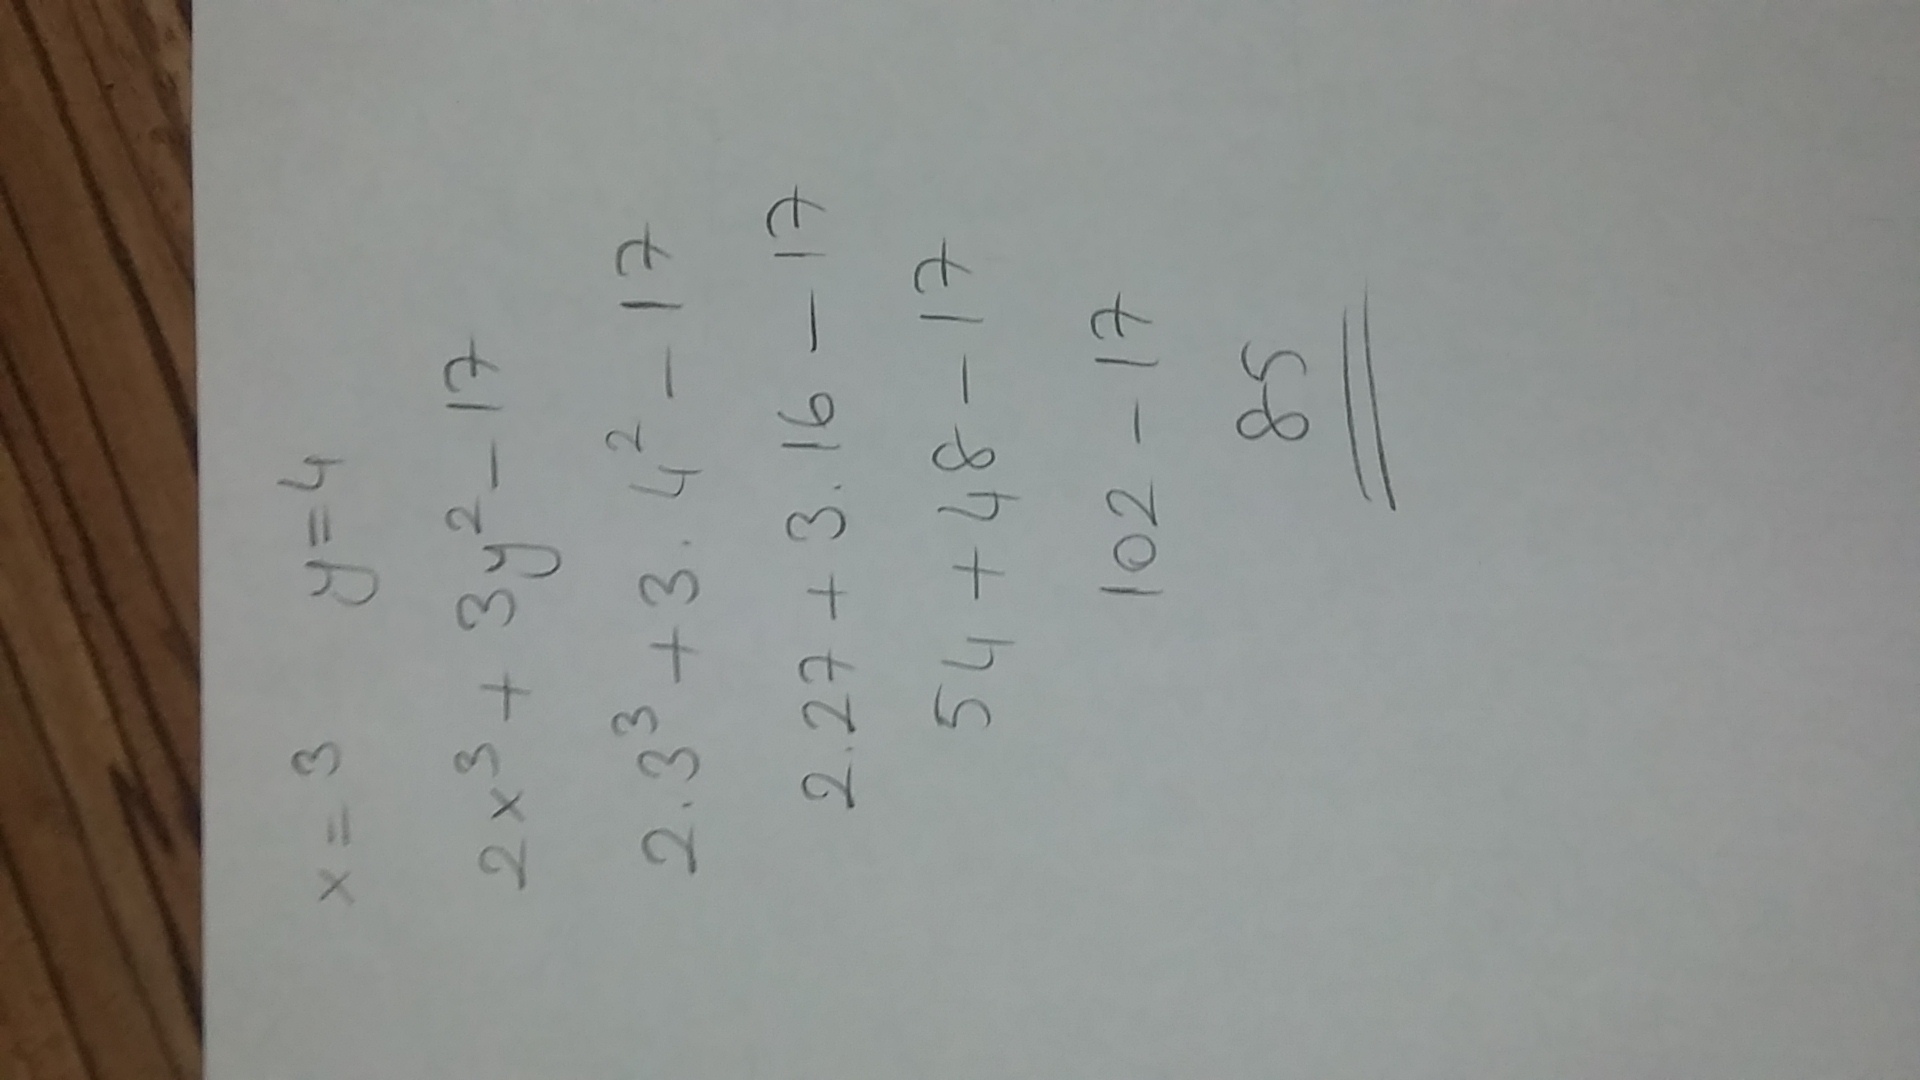 x = 3 y = 4
2x³ + 3y² - 17
2.3³ + 3.4² - 17
2.27 + 3.16 - 17
54 + 48 - 17
102 - 17
85